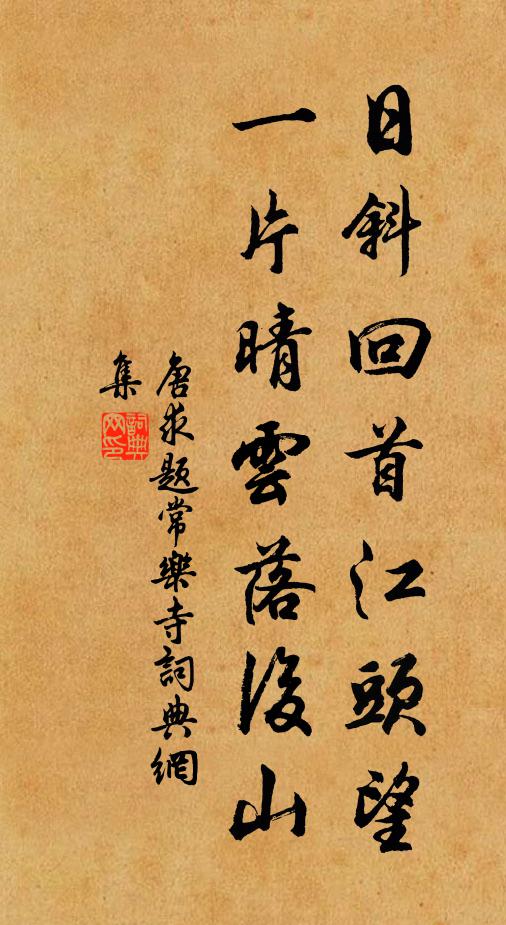 日斜回首江頭望
一片晴雲落後山
唐求題常樂寺詞典網
集
詞典網印